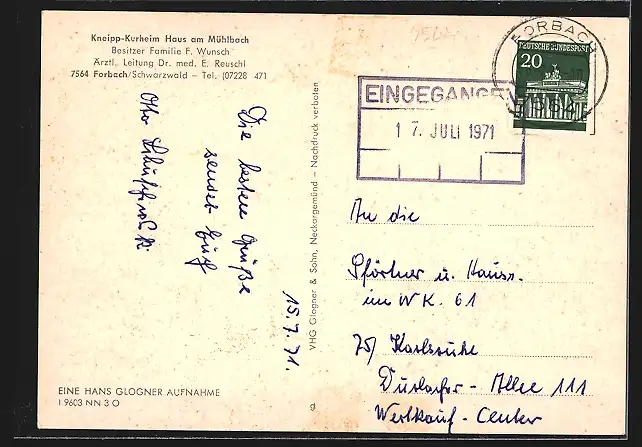 Kneipp-Kurheim Haus am Mühlbach
Besitzer Familie F. Wunsch
Ärztl. Leitung Dr. med. E. Reuschl
7564 Forbach/Schwarzwald – Tel. (07228 471
Die besten Grüße
sendet Euch
Otto
15.7.71.
EINE HANS GLOGNER AUFNAHME
I 9603 NN 3 O
VHG Glogner & Sohn, Neckargemünd – Nachdruck verboten
g
FORBACH
DEUTSCHE BUNDESPOST
20
EINGEGANGEN
1 7. JULI 1971
An die
Pförtner u. Hauss.
im WK. 61
75/ Karlsruhe
Durlacher-Allee 111
Wertkauf-Center